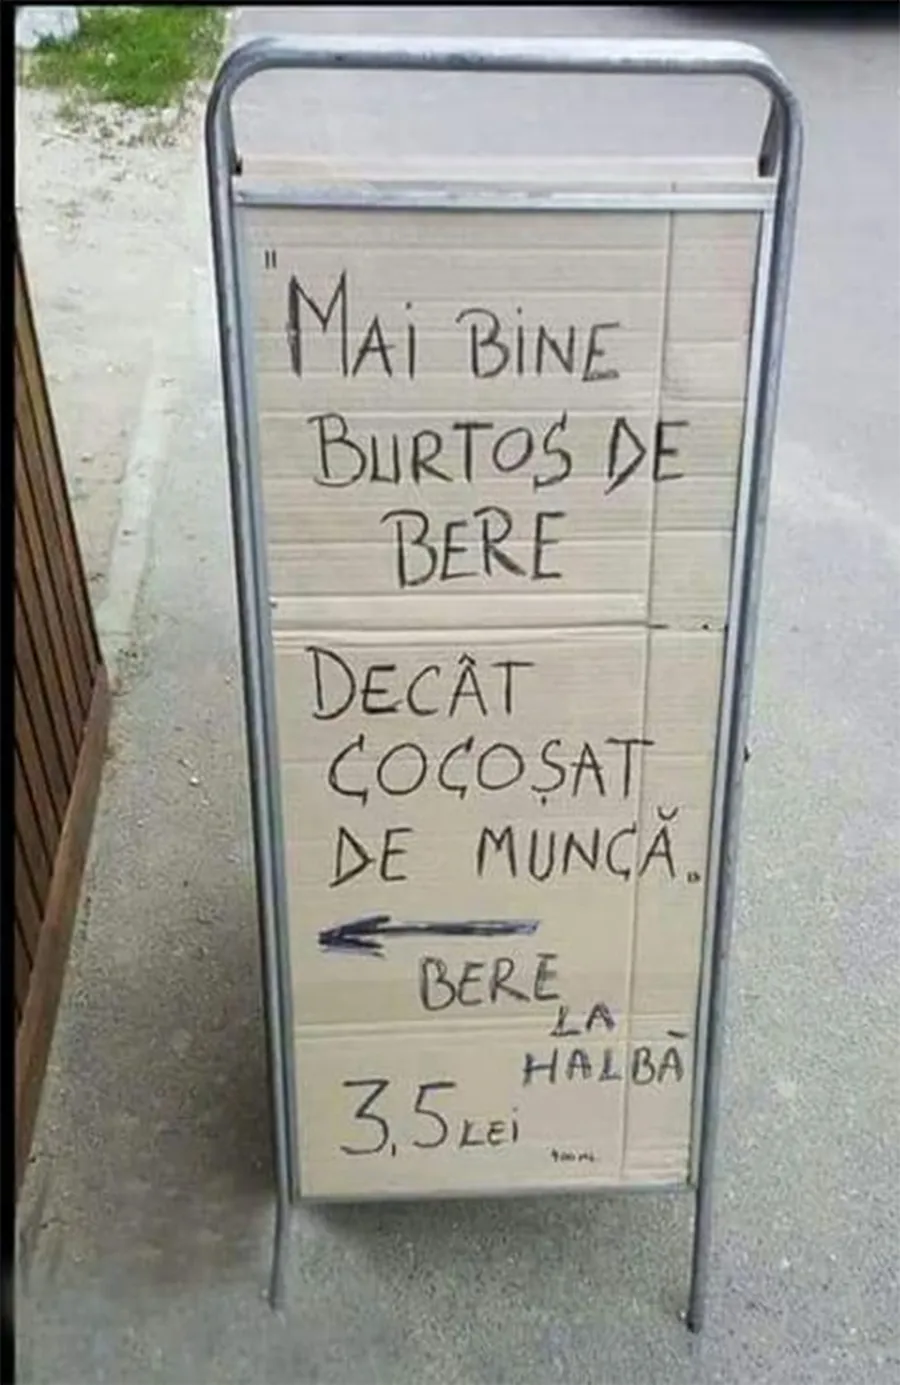 "MAi BiNE
BURTOȘ DE
BERE
DECÂT
COCOȘAT
DE MUNCĂ."
BERE
LA
HALBĂ
3,5 LEi
400 ML